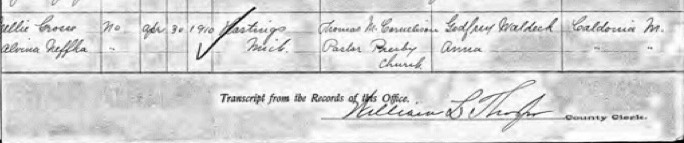 ellie Crowe No Apr 30 1910 Hastings Thomas M. Cornelison Godfrey Waldeck Caldonia M.
alvina Neffka " Mich. Pastor Presby Anna " "
Church
Transcript from the Records of this Office.
William L Thorpe County Clerk.